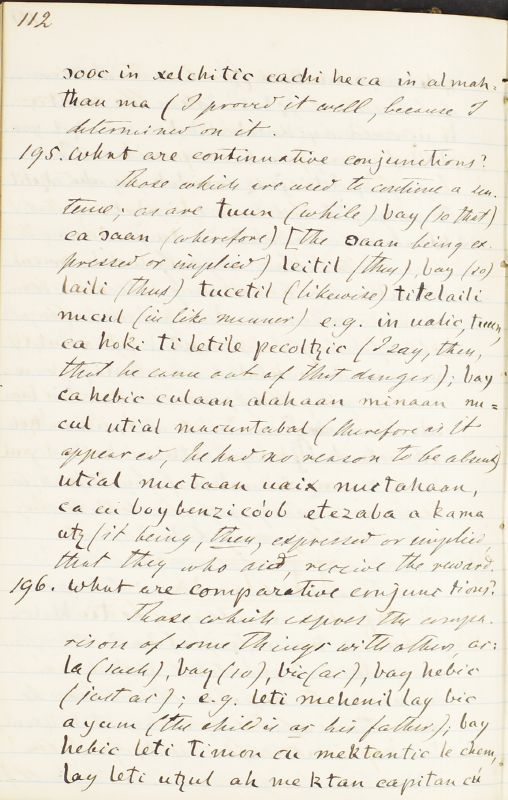 112
ɔooc in xelchitic cachi heca in almah=
than ma (I proved it well, because I
determined on it.
195. What are continuative conjunctions?
Those which are used to continue a sen-
tence; as are tuun (while) bay (so that)
ca ɔaan (wherefore) [the ɔaan being ex-
pressed or implied) leitil (thus), bay (so)
laili (thus) tucetil (likewise) titelaili
nucul (in like manner) e.g. in ualic, tuun,
ca hoki ti letile pecoltzic (I say, then,
that he came out of that danger); bay
ca hebic culaan alahaan minaan nu=
cul utial macuntabal (therefore as it
appeared, he had no reason to be absent)
utial nuctaan uaix nuctahaan,
ca cu boybenzicóob etezaba a kama
utz (it being, then, expressed or implied,
that they who aid, receive the reward.
196. What are comparative conjunctions?
Those which express the compa-
rison of some things with others, as:
la (such), bay (so), bic (as), bay hebic
(just as); e.g. leti mehenil lay bic
a yum (the child is as his father); bay
hebic leti timon cu mektantic le chem,
lay leti utzul ah mektan capitan cú